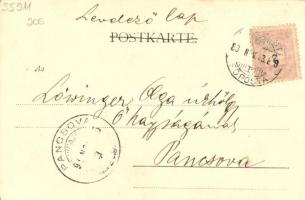 S59M
Levelező lap
POSTKARTE.
An
Löwinger Olga úrhölgy
Ő nagyságának
Pancsova
PANCSOVA